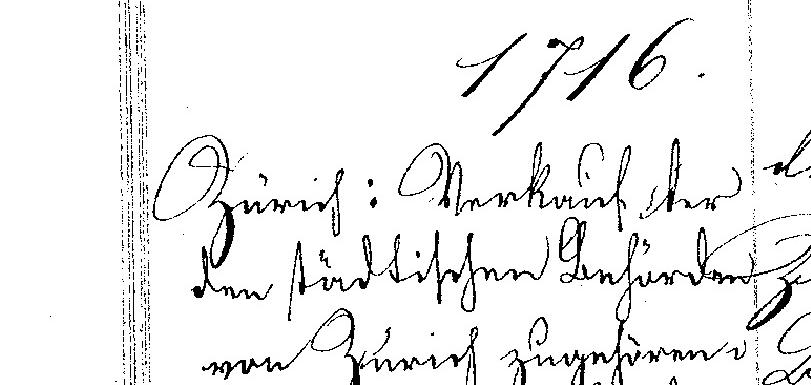 1716.
Zürich: Verkauf der
den städtischen Behörden
von Zürich zugehören